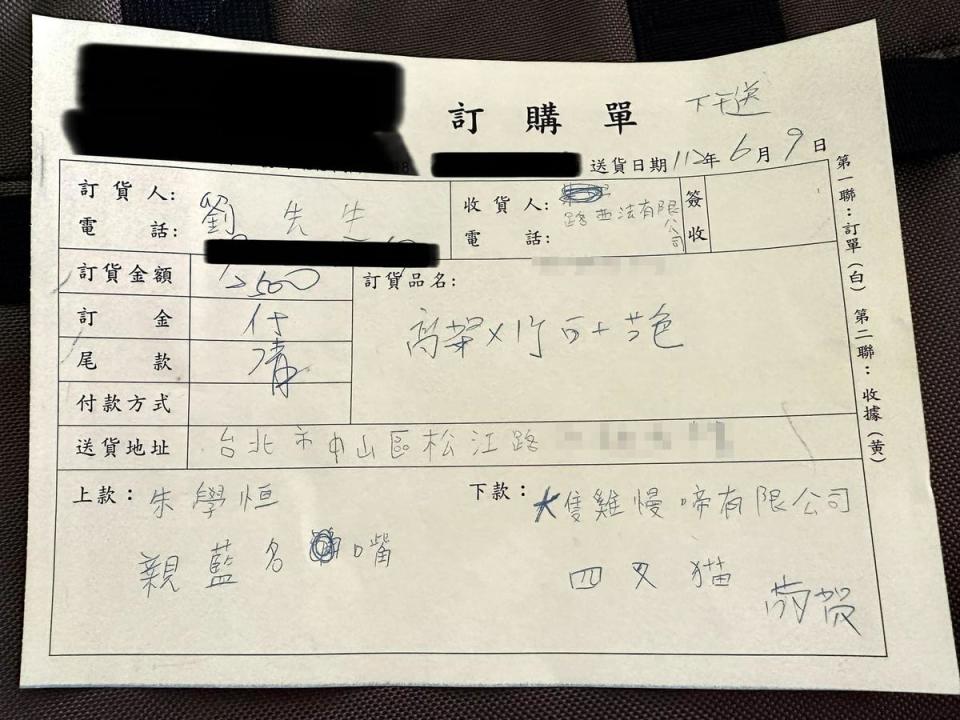 訂購單 下午送
送貨日期112年6月9日
訂貨人: 劉先生
電話:
收貨人: 路西法有限公司
電話:
簽收
訂貨金額 2500
訂金 付
尾款 清
付款方式
訂貨品名:
高架×1
送貨地址 台北市中山區松江路
上款: 朱學恒
親藍名嘴
下款: 大隻雞慢啼有限公司
四叉貓 敬賀
第一聯:訂單(白) 第二聯:收據(黃)